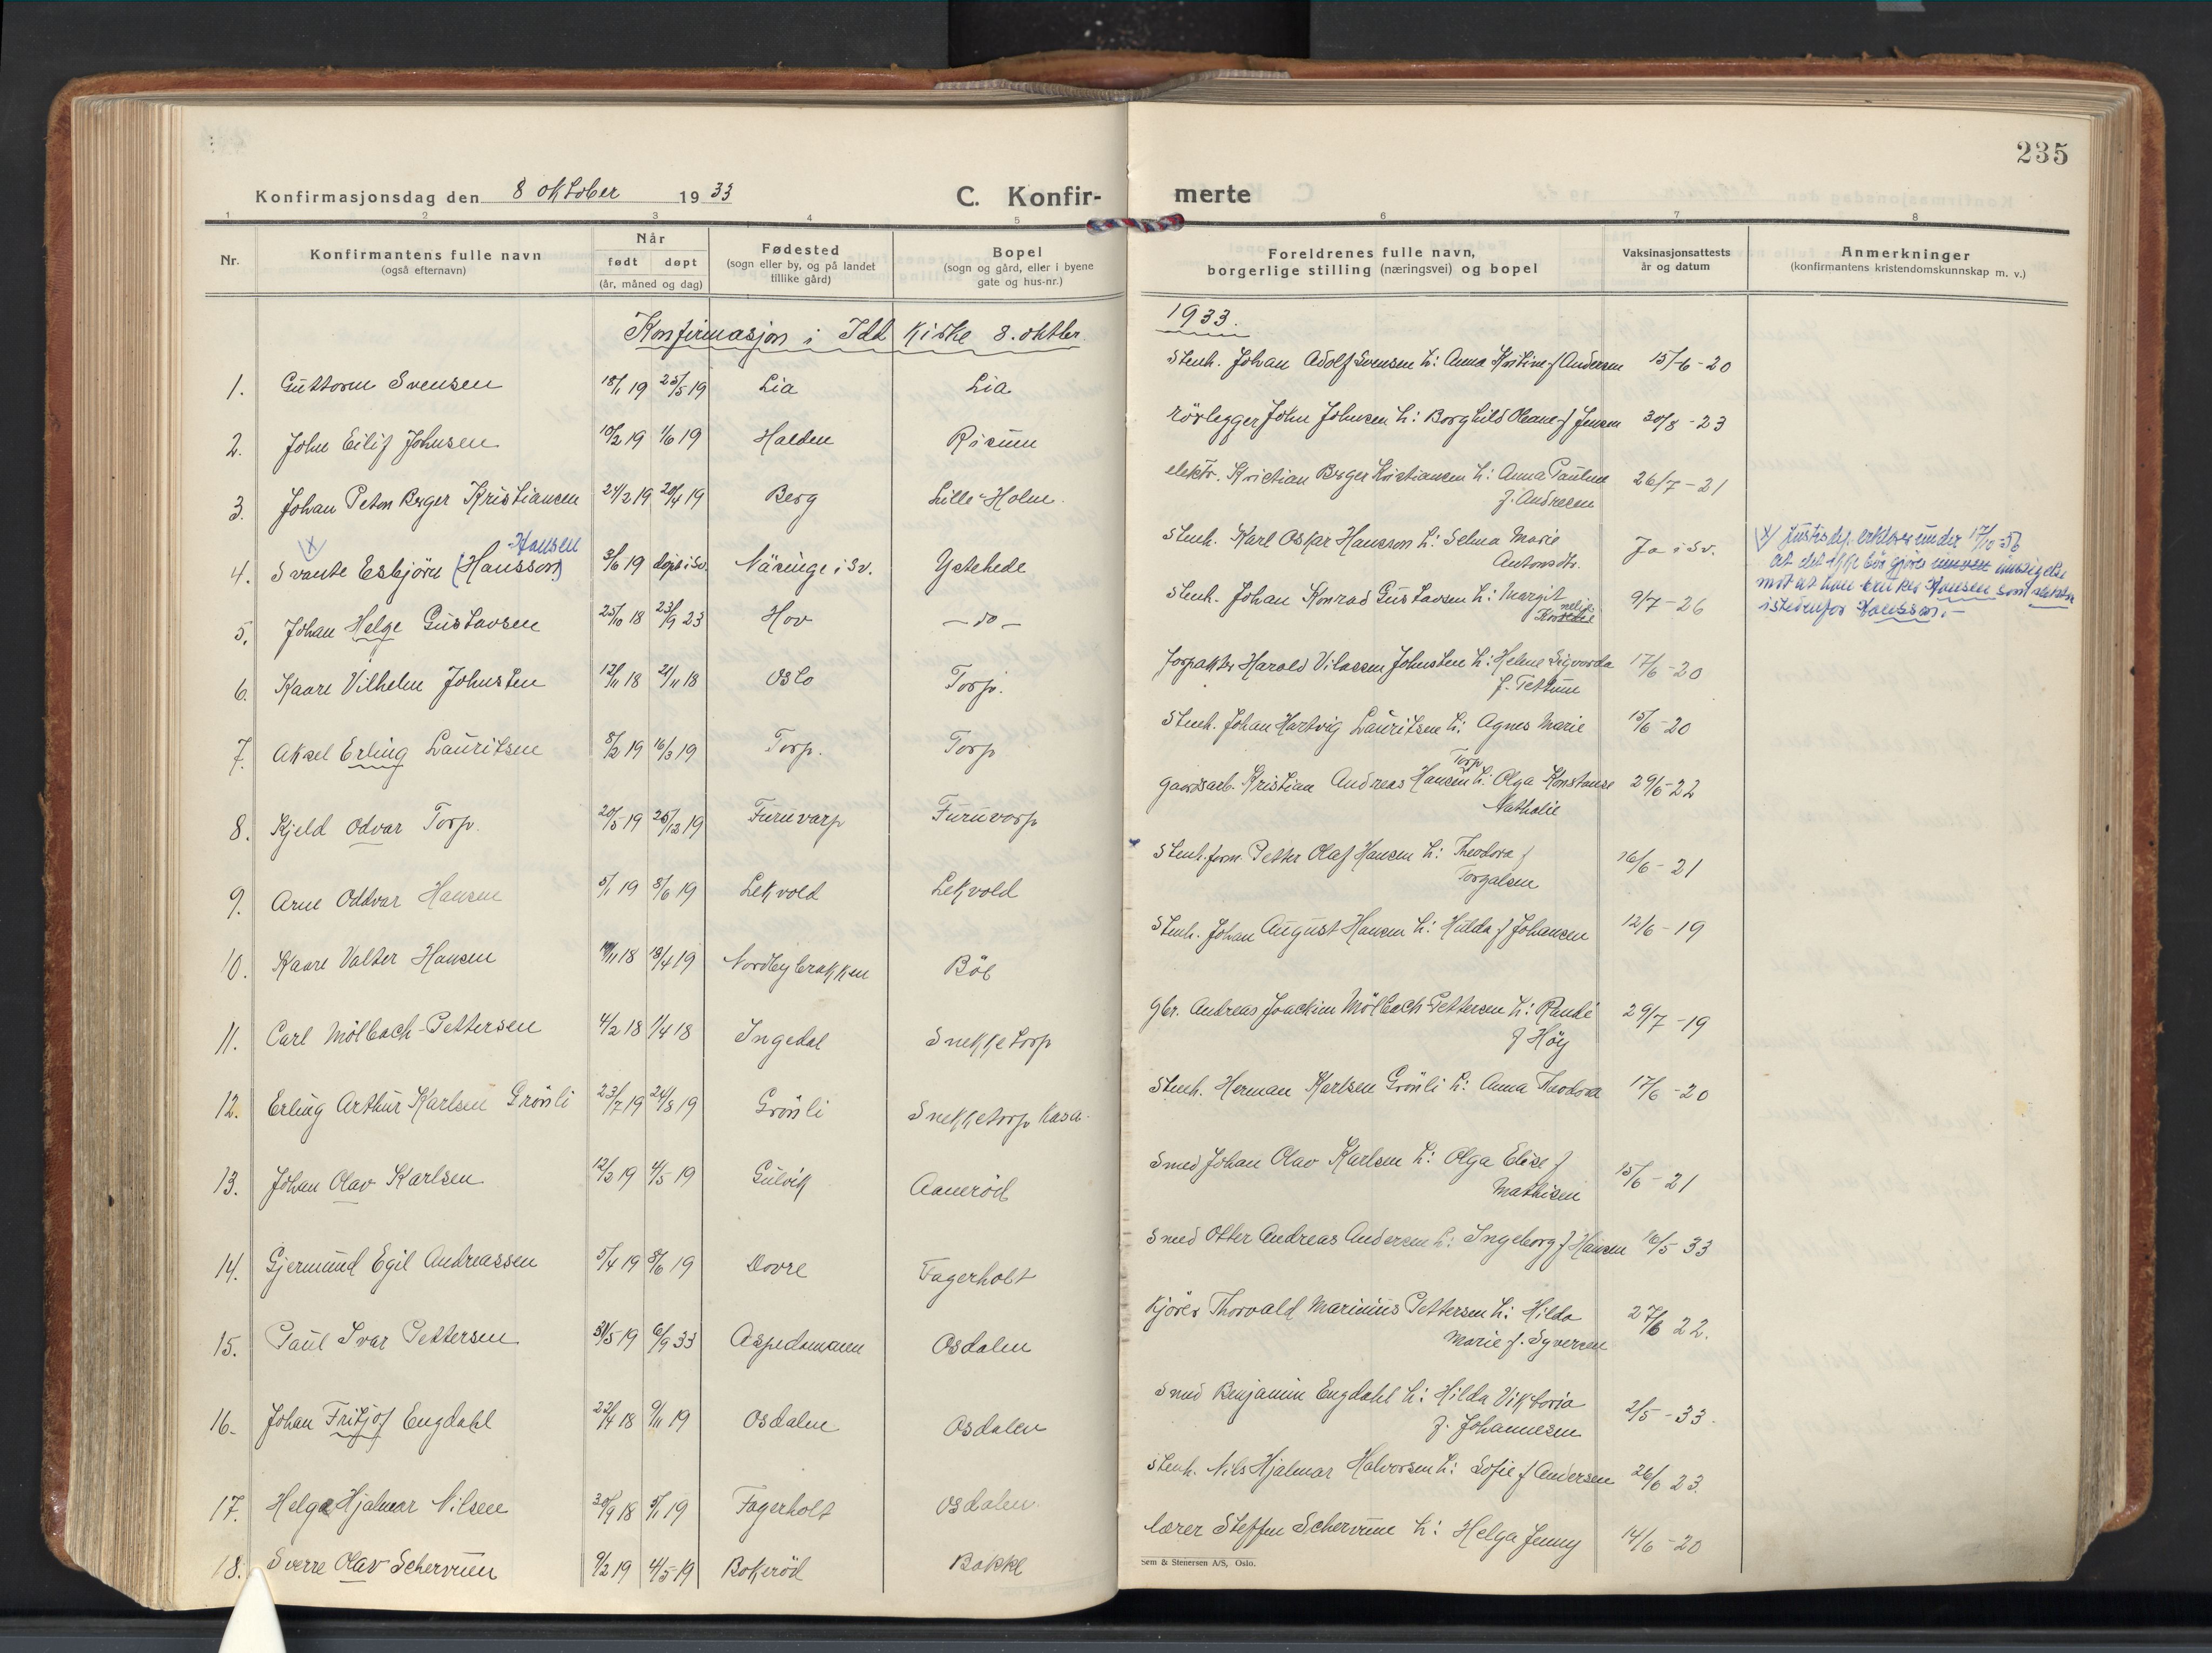 235
Konfirmasjonsdag den 8 oktober 1933 C. Konfir- merte
1 2 3 4 5 6 7 8
Nr. Konfirmantens fulle navn (også efternavn) Når født døpt (år, måned og dag) Fødested (sogn eller by, og på landet tillike gård) Bopel (sogn og gård, eller i byene gate og hus-nr.) Foreldrenes fulle navn, borgerlige stilling (næringsvei) og bopel Vaksinasjonsattests år og datum Anmerkninger (konfirmantens kristendomskunnskap m. v.)
Konfirmasjon i Idd Kirke 8. oktbr. 1933.
1. Guttorm Svensen 18/1 19 25/5 19 Lia Lia Stenh. Johan Adolf Svensen h: Anna Kristine f Andersen 15/6-20
2. John Eilif Johnsen 10/2 19 1/6 19 Halden Risum rørlegger John Johnsen h: Borghild Oleane f Jensen 30/8-23
3. Johan Peton Berger Kristiansen 24/2 19 20/4 19 Berg Lille-Holm. elektr. Kristian Berger Kristiansen h: Anna Pauline f. Andresen 26/7-21
4. Svante Esbjörn (Hansson) Hansen 3/6 19 døpt i Sv. Näsinge i Sv. Ystehede Stenh. Karl Oskar Hansson h: Selma Marie Antonsdtr. Ja i Sv.
x) Justisdep. erklærer under 17/10-56 at det ikke bør gjøres innsigelse mot at han bruker Hansen som slektsn istedenfor Hansson.-
5. Johan Helge Gustavsen 25/10 18 23/9 23 Hov -do- Stenh. Johan Konrad Gustavsen h: Margit 9/7-26
6. Kaare Vilhelm Johnsten 12/11 18 21/11 18 Oslo Torp. forpakter Harald Vilassen Johnsten h: Helene Sigvorda f. Tettum 17/6-20
7. Aksel Erling Lauritsen 8/2 19 16/3 19 Torp. Torp Stenh. Johan Hartvig Lauritsen h: Agnes Marie 15/6-20
8. Kjeld Odvar Torp. 20/5 19 25/12 19 Furuvarp Furuvorp gaardsarb. Kristian Andreas Hansen Torp h: Olga Konstanse Nathalie 29/6-22
9. Arne Oddvar Hansen 5/1 19 8/6 19 Lekvold Lekvold Stenh.form. Petter Olaf Hansen h: Theodora f Torgalsen 16/6-21
10. Kaare Valter Hansen 19/11 18 18/4 19 Nordbybrakken Böb Stenh. Johan August Hansen h: Hulda f Johansen 12/6-19
11. Carl Mölbach-Pettersen 4/2 18 1/4 18 Ingedal Snekketorp Gbr. Andreas Joackim Mölbach-Pettersen h: Randi f Höy 29/7-19
12. Erling Arthur Karlsen Grönli 23/7 19 24/8 19 Grönli Snekketorp Kasa. Stenh. Herman Karlsen Grönli h: Anna Theodora 17/6-20
13. Johan Olav Karlsen 12/3 19 4/5 19 Gulvik Aanerød Smed Johan Olav Karlsen h: Olga Elise f Mathisen 15/6-21
14. Gjermund Egil Andreassen 5/4 19 8/6 19 Dovre Fagerholt Smed Otter Andreas Andersen h: Ingeborg f Hansen 16/5 33
15. Paul Ivar Pettersen 31/5 19 6/9 33 Aspedammen Osdalen Kjører Thorvald Marinius Pettersen h: Hilda Marie f. Syversen 27/6 22.
16. Johan Fritjof Engdahl 22/4 18 9/11 19 Osdalen Osdalen Smed Benjamin Engdahl h: Hilda Viktoria f. Johannesen 2/5-33.
17. Helge Hjalmar Nilsen 30/9 18 5/1 19 Fagerholt Osdalen Stenh. Nils Hjalmar Halvorsen h: Sofie f Andersen 26/6 23.
18. Sverre Olav Schervum 9/2 19 4/5 19 Bokerød Bakke lærer Steffen Schervum h: Helga Jenny 14/6-20
Sem & Stenersen A/S, Oslo.